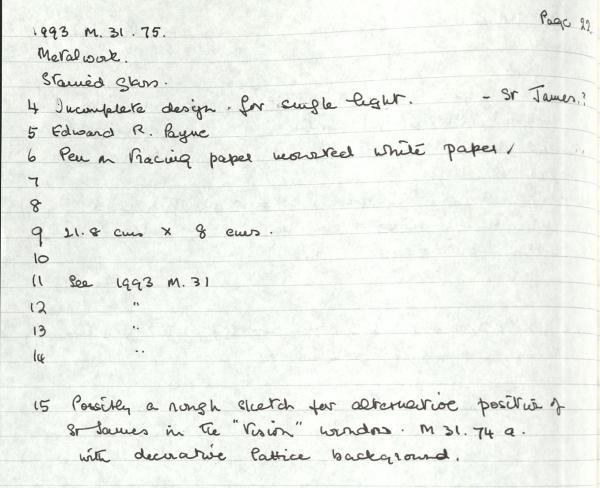 Page 22
1993 M. 31. 75.
Metalwork.
Stained Glass.
4 Incomplete design. for single light. - St James?
5 Edward R. Payne
6 Pen on tracing paper mounted white paper.
7
8
9 21.8 cms x 8 cms.
10
11 See 1993 M. 31
12 "
13 "
14 "
15 Possibly a rough sketch for alternative position of
St James in the "Vision" window. M 31. 74 a.
with decorative lattice background.